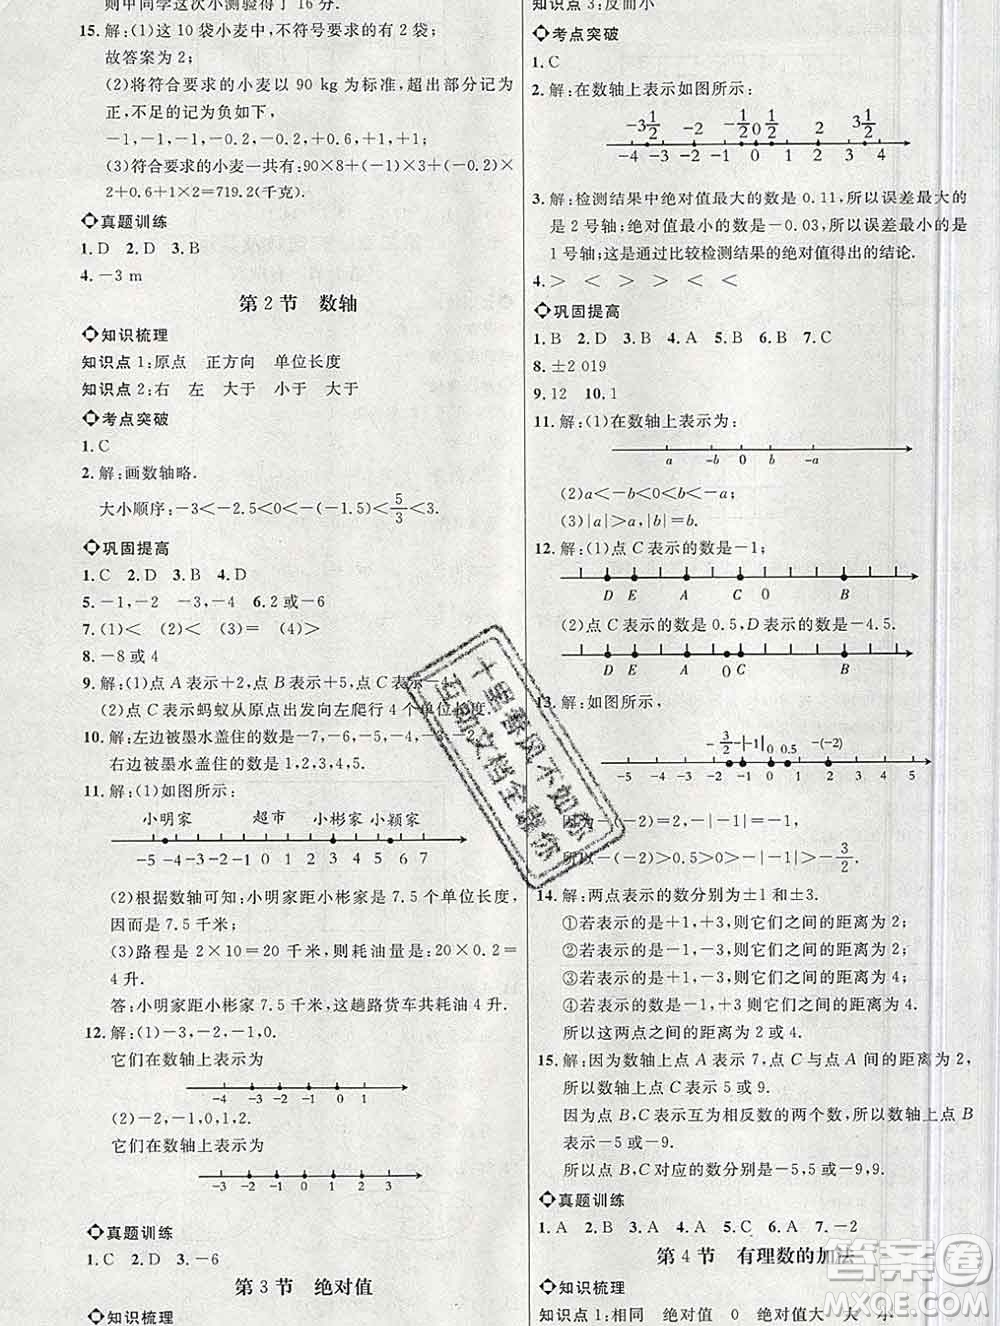 则甲同学这次小测验得了 16 分.
15. 解:(1)这 10 袋小麦中,不符号要求的有 2 袋;
故答案为 2;
(2)将符合要求的小麦以 90 kg 为标准,超出部分记为
正,不足的记为负如下,
-1,-1,-1,-0.2,-0.2,+0.6,+1;
(3)符合要求的小麦一共有:90×8+(-1)×3+(-0.2)×
2+0.6+1×2=719.2(千克).
真题训练
1. D 2. D 3. B
4. -3 m
第 2 节 数轴
知识梳理
知识点 1:原点 正方向 单位长度
知识点 2:右 左 大于 小于 大于
考点突破
1. C
2. 解:画数轴略.
大小顺序:-3<-2.5<0<-(-1.5)<5/3<3.
巩固提高
1. C 2. D 3. B 4. D
5. -1,-2 -3,-4 6. 2 或-6
7. (1)< (2)< (3)= (4)>
8. -8 或 4
9. 解:(1)点 A 表示+2,点 B 表示+5,点 C 表示-4;
(2)点 C 表示蚂蚁从原点出发向左爬行 4 个单位长度.
10. 解:左边被墨水盖住的数是-7,-6,-5,-4,-3,-2,
右边被墨水盖住的数是 1,2,3,4,5.
11. 解:(1)如图所示:
小明家 超市 小彬家 小颖家
-5 -4 -3 -2 -1 0 1 2 3 4 5 6 7
(2)根据数轴可知:小明家距小彬家是 7.5 个单位长度,
因而是 7.5 千米;
(3)路程是 2×10=20 千米,则耗油量是:20×0.2=
4 升.
答:小明家距小彬家 7.5 千米,这趟路货车共耗油 4 升.
12. 解:(1)-3,-2,-1,0.
它们在数轴上表示为
-4 -3 -2 -1 0 1
(2)-2,-1,0,1,2.
它们在数轴上表示为
-3 -2 -1 0 1 2 3
真题训练
1. C 2. D 3. -6
第 3 节 绝对值
知识梳理
知识点 3:反而小
考点突破
1. C
2. 解:在数轴上表示如图所示:
-3 1/2 -2 -1/2 0 1/2 2 3 1/2
-4 -3 -2 -1 0 1 2 3 4
3. 解:检测结果中绝对值最大的数是 0.11,所以误差最大的
是 2 号轴;绝对值最小的数是-0.03,所以误差最小的是
1 号轴;这是通过比较检测结果的绝对值得出的结论.
4. > < > <
巩固提高
1. B 2. D 3. D 4. B 5. B 6. B 7. C
8. ±2 019
9. 12 10. 1
11. 解:(1)在数轴上表示为:
a -b 0 b -a
(2)a<-b<0<b<-a;
(3)|a|>a,|b|=b.
12. 解:(1)点 C 表示的数是-1;
D E A C 0 B
(2)点 C 表示的数是 0.5,D 表示的数是-4.5.
D E A C B
13. 解:如图所示,
-3/2 -|-1| 0 0.5 -(-2)
-5 -4 -3 -2 -1 0 1 2 3 4 5
因为-(-2)=2,-|-1|=-1,
所以-(-2)>0.5>0>-|-1|>-3/2.
14. 解:两点表示的数分别为±1 和±3.
①若表示的是+1,+3,则它们之间的距离为 2;
②若表示的是-1,-3,则它们之间的距离为 2;
③若表示的是+1,-3 则它们之间的距离为 4;
④若表示的是-1,+3 则它们之间的距离为 4.
所以这两点之间的距离为 2 或 4.
15. 解:因为数轴上点 A 表示 7,点 C 与点 A 间的距离为 2,
所以数轴上点 C 表示 5 或 9.
因为点 B,C 表示互为相反数的两个数,所以数轴上点 B
表示-5 或-9.
所以点 B,C 对应的数分别是-5,5 或-9,9.
真题训练
1. A 2. B 3. A 4. A 5. C 6. A 7. -2
第 4 节 有理数的加法
知识梳理
知识点 1:相同 绝对值 0 绝对值大 大 小
十里春风不如你
互助文档全靠你
答案圈
MXQE.COM